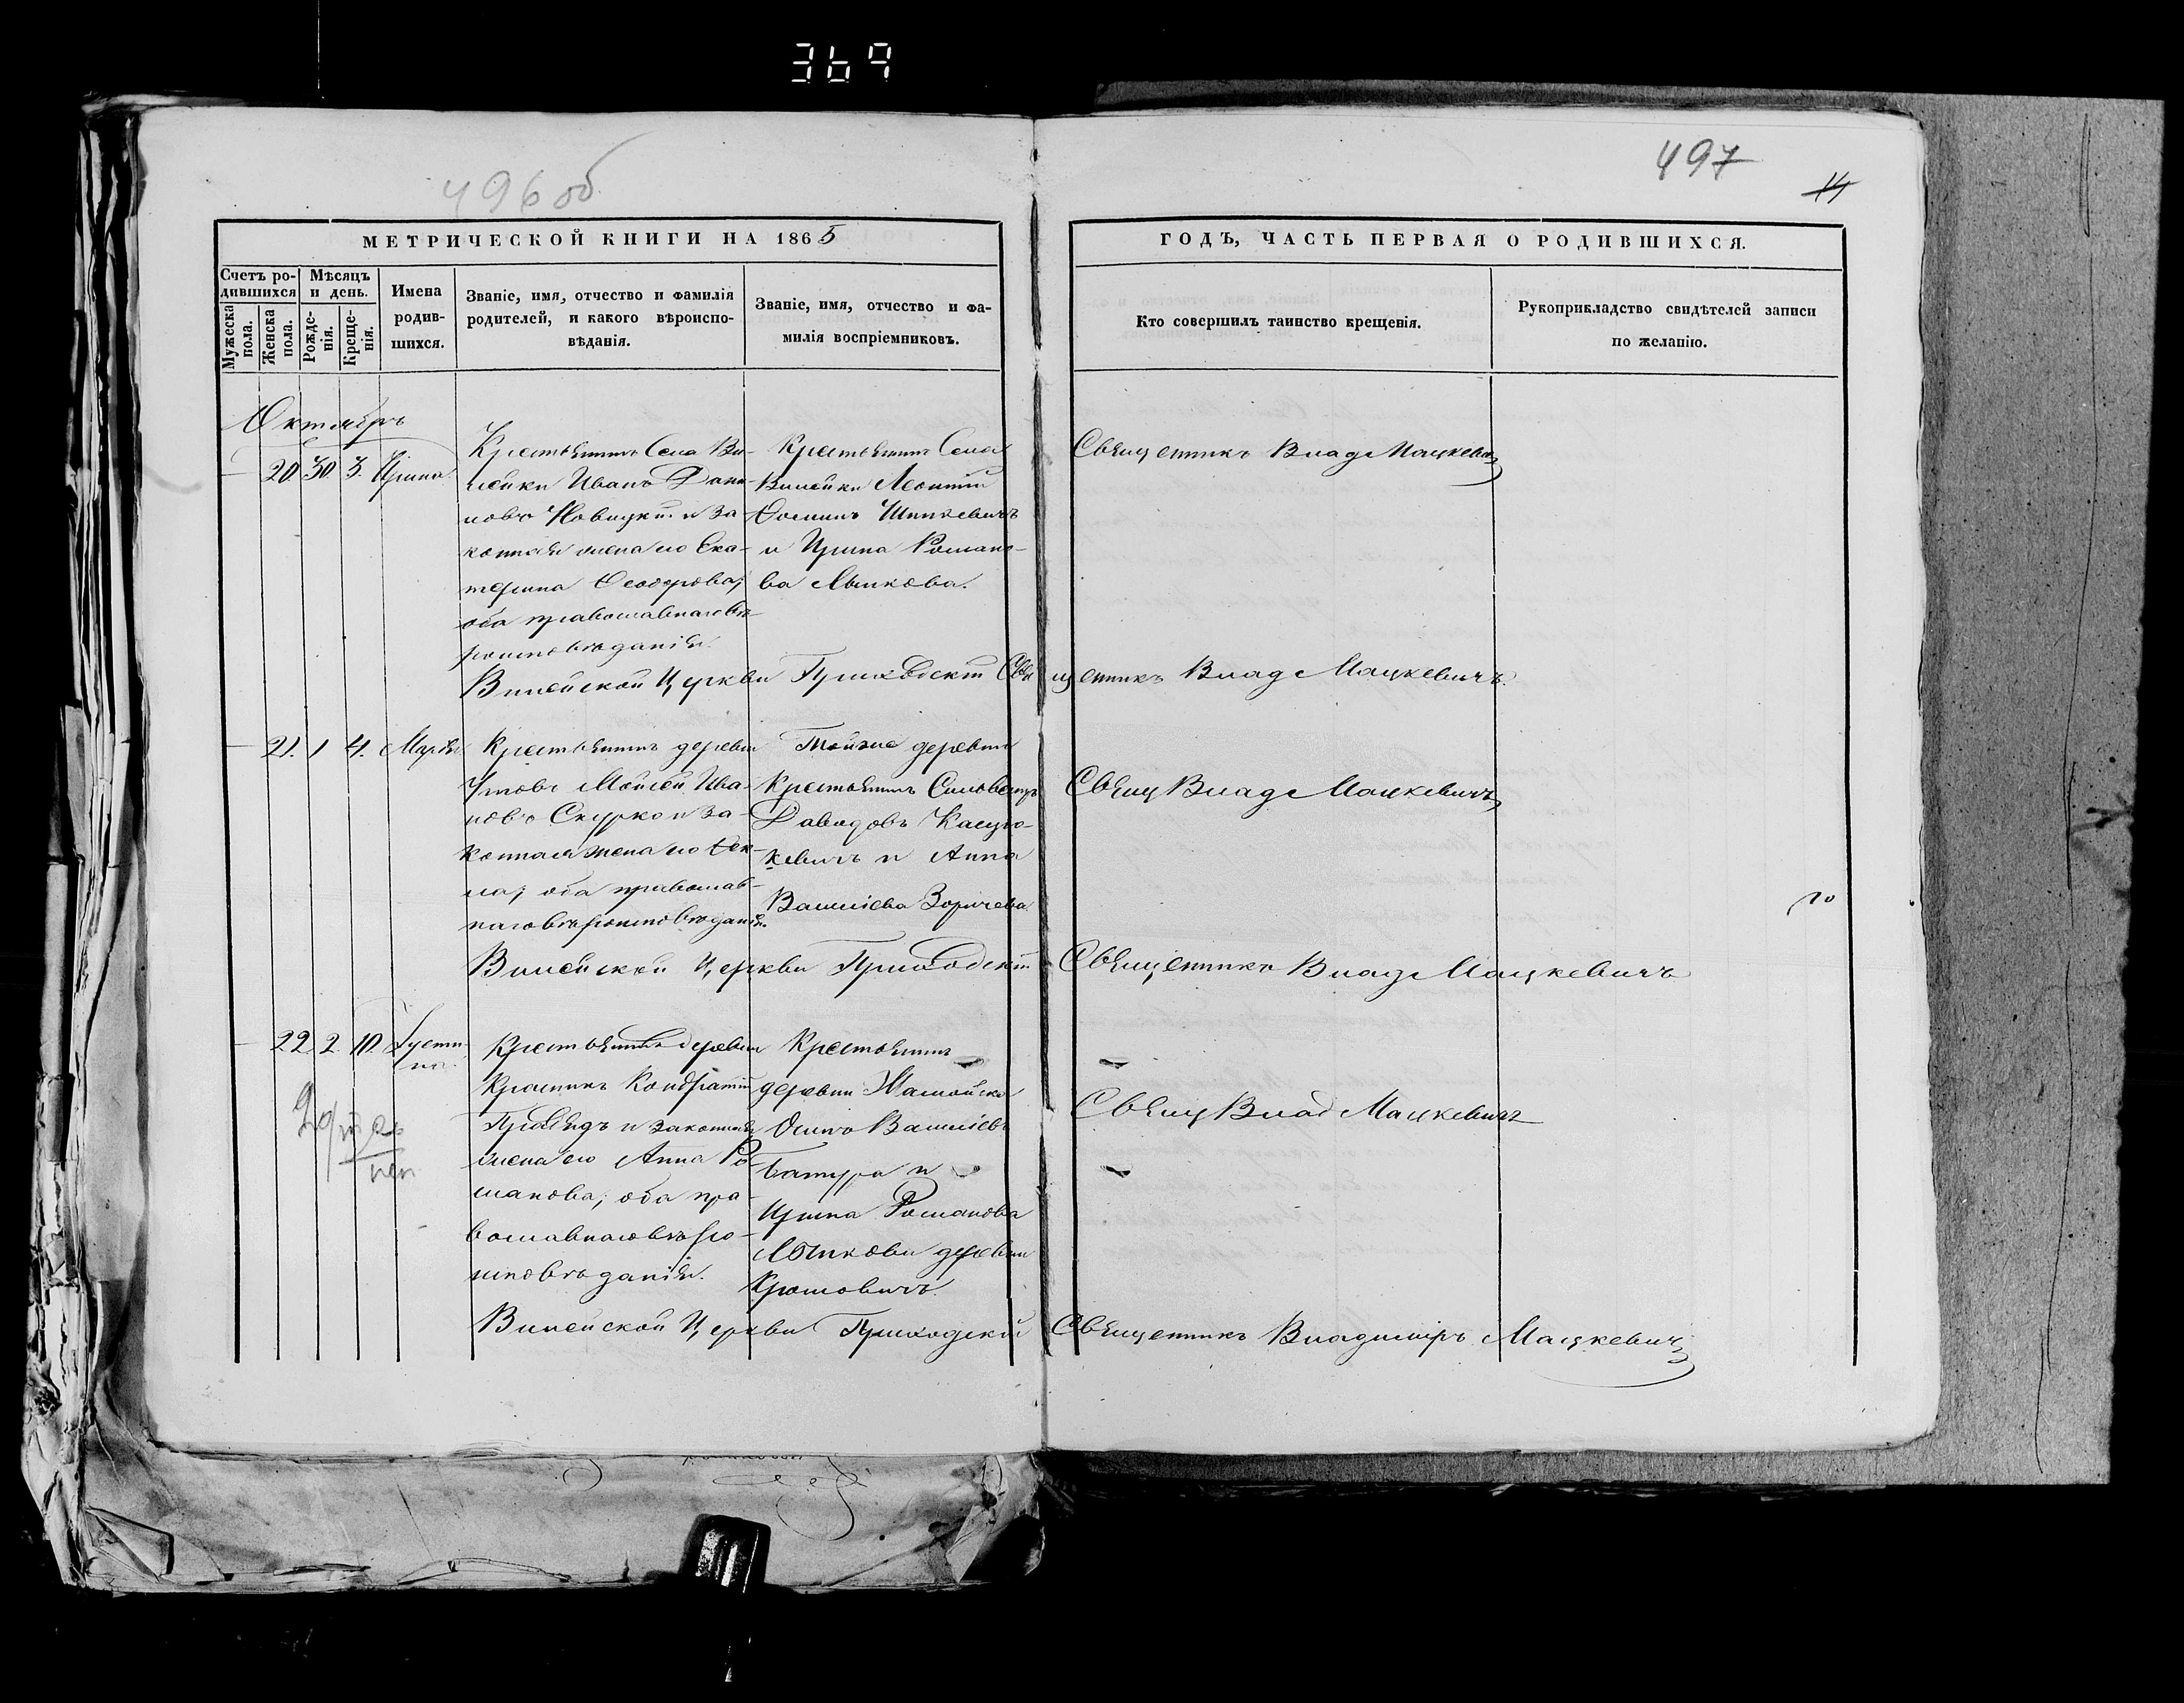 369
496 об
497
14
МЕТРИЧЕСКОЙ КНИГИ НА 1865
ГОДЪ, ЧАСТЬ ПЕРВАЯ О РОДИВШИХСЯ.
Счетъ ро-
дившихся
Мужеска
пола.
Женска
пола.
Мѣсяцъ
и день.
Рожде-
нія.
Креще-
нія.
Имена
родив-
шихся.
Званіе, имя, отчество и фамилія
родителей, и какого вѣроиспо-
вѣданія.
Званіе, имя, отчество и фа-
милія воспріемниковъ.
Кто совершилъ таинство крещенія.
Рукоприкладство свидѣтелей записи
по желанію.
Октябрь
20. 30. 3. Ирина.
Крестьянинъ Села Ви-
лейки Иванъ Дани-
ловъ Новицкій и за-
конная жена его Ека-
терина Ѳеодорова;
оба православнаго вѣ-
роисповѣданія.
Крестьянинъ Села
Вилейки Леонтій
Ѳоминъ Шинкевичъ
и Ирина Романо-
ва Лышкова.
Священникъ Влад Мацкевич
Вилейской Церкви Приходскій Священникъ Влад Мацкевичъ.
21. 1 4. Марѳа
Крестьянинъ деревни
Моисей Ива-
новъ Скурко и за-
конная жена его Ѳек-
ла; оба православ-
наго вѣроисповѣданія.
Тойже деревни
Крестьянинъ
Давидовъ
и Анна
Василіева Зоричева
Свящ Влад Мацкевичъ
Вилейской Церкви Приходскій Священникъ Влад Мацкевичъ
22 2. 10. Іусти-
на.
Крестьянинъ деревни
Красникъ Кондратій
и законная
жена его Анна Ро-
манова; оба пра-
вославнаго вѣро-
исповѣданія.
Крестьянинъ
деревни
Осипъ Василіевъ
Батура и
Ирина Романова
Лышкова деревни
Свящ Влад Мацкевичъ
Вилейской Церкви Приходскій Священникъ Владиміръ Мацкевичъ